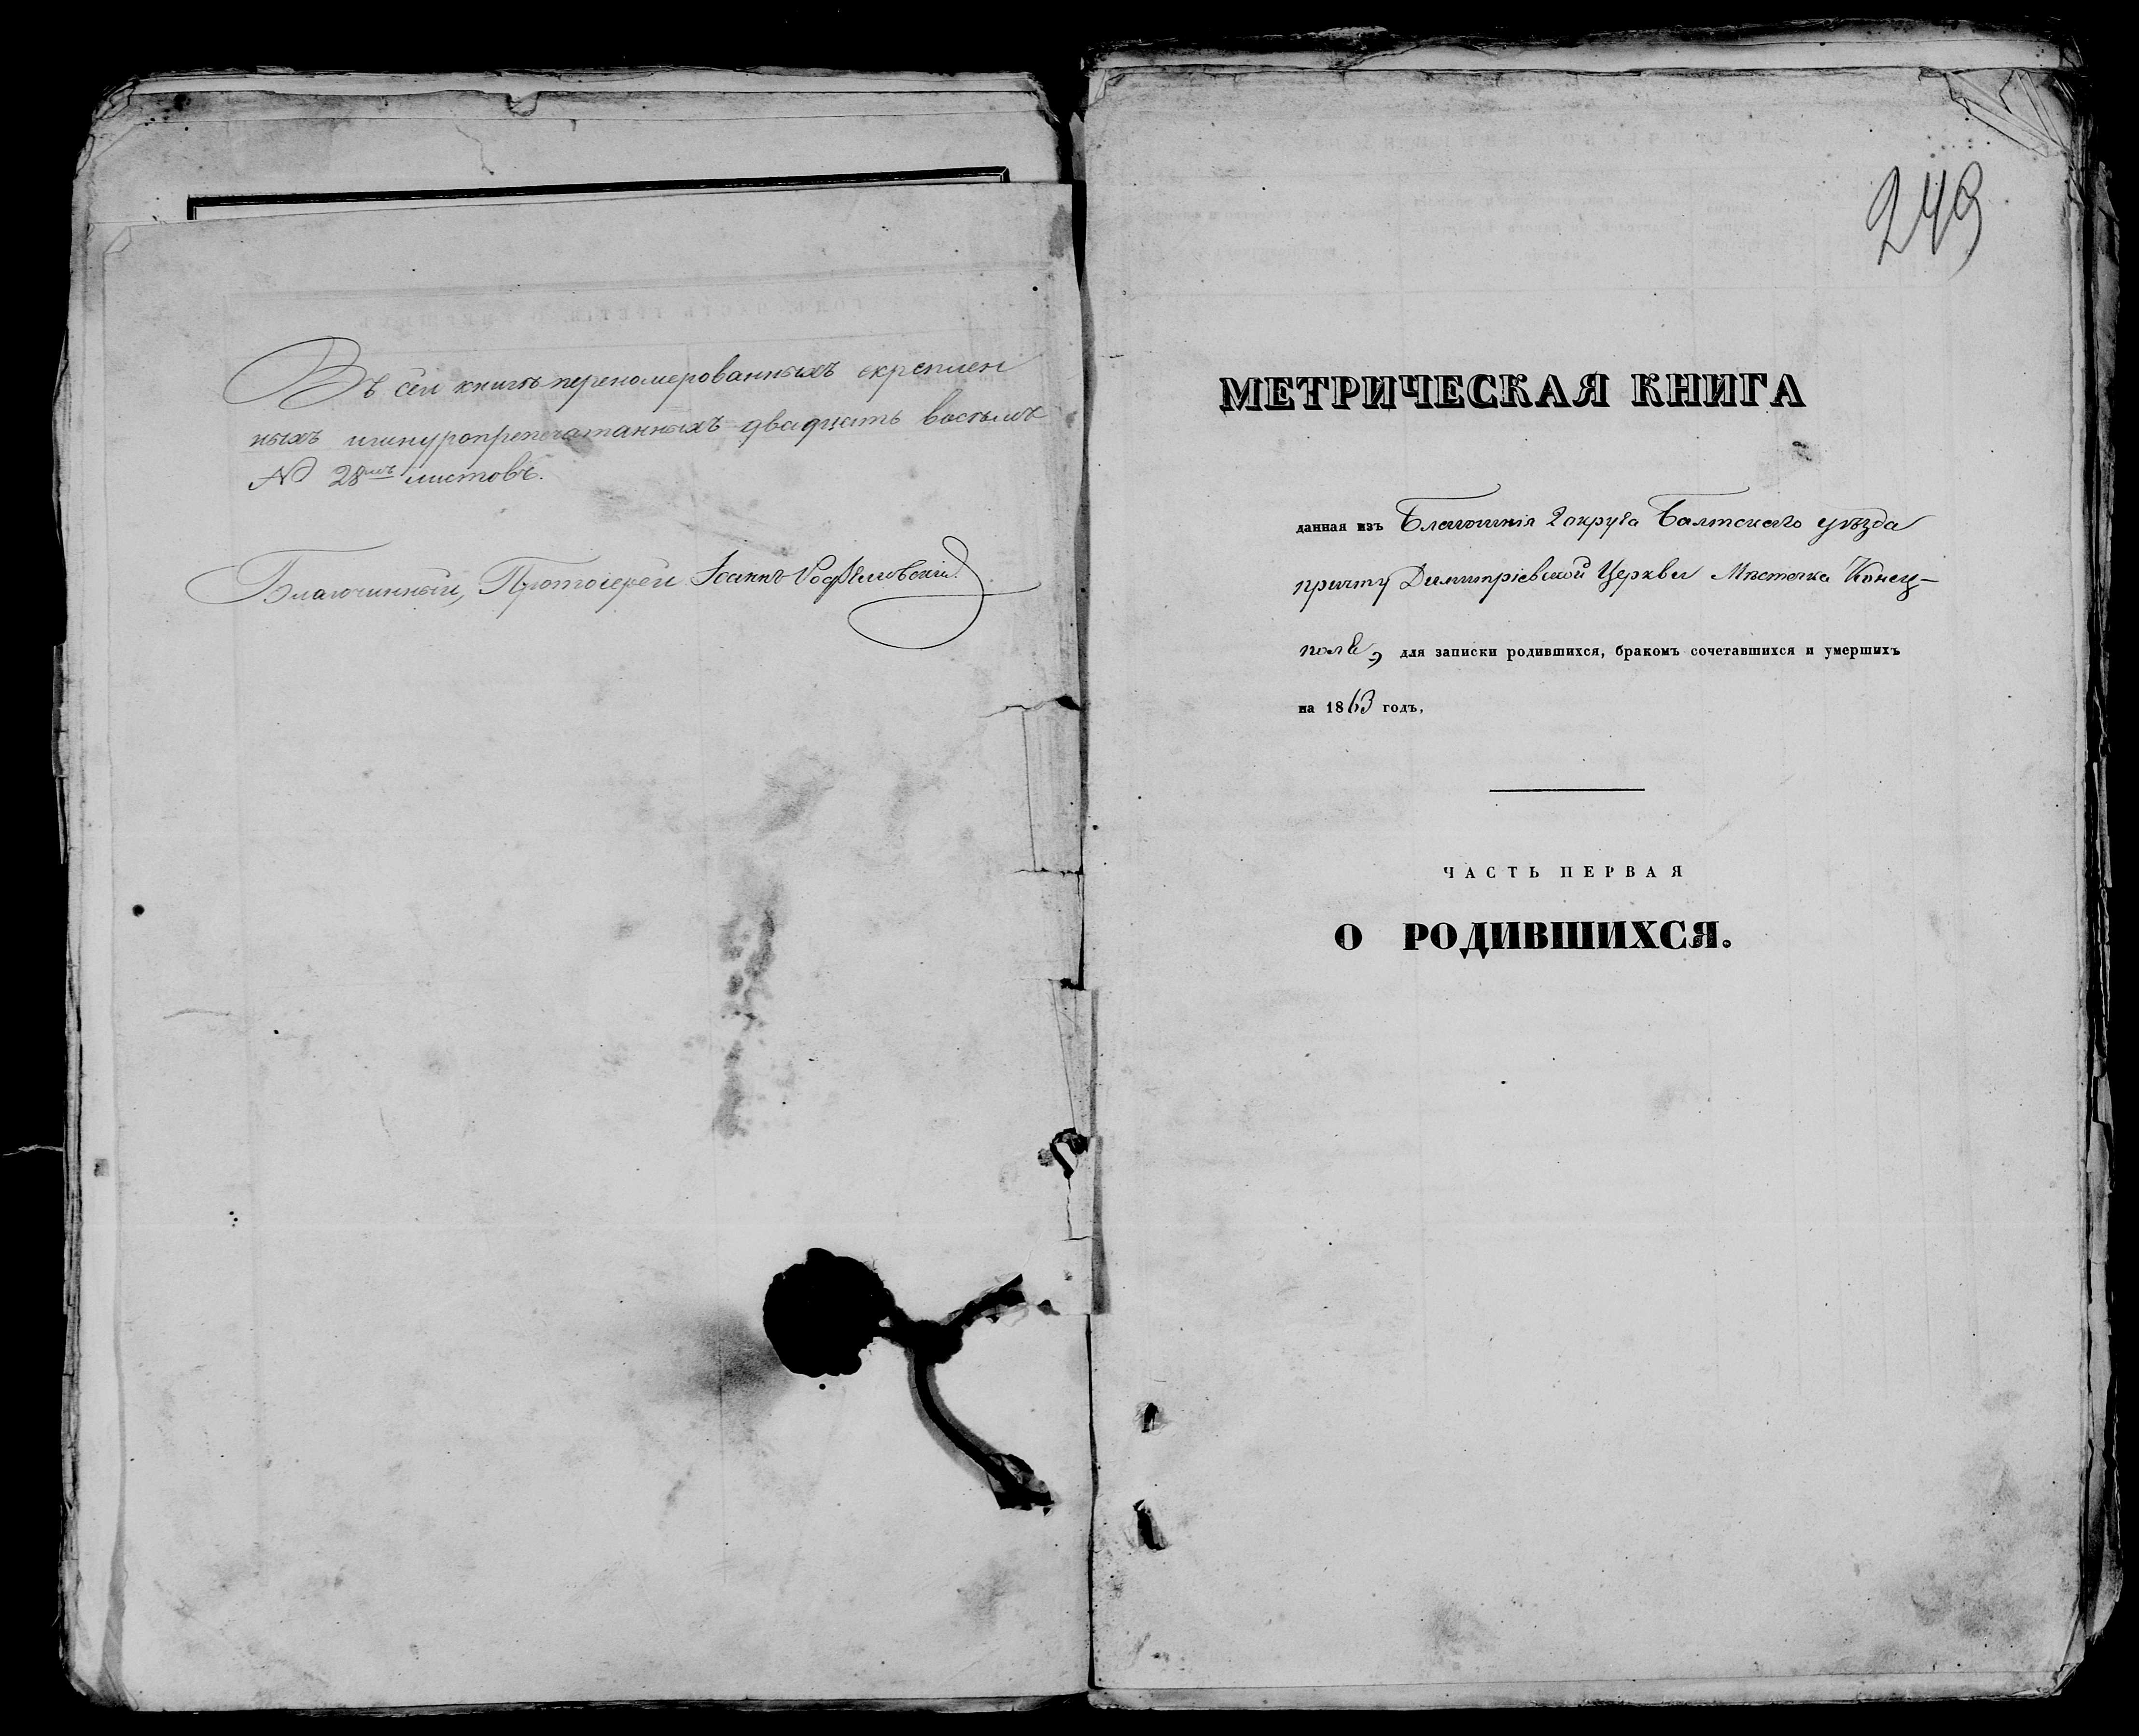 Въ сей книгѣ перенамерованныхъ скреплен
ныхъ шнуропрепечатанныхъ двадцать восемь
№ 28мь листовъ.
Благочинный, Протоіерей Іоаннъ
249
МЕТРИЧЕСКАЯ КНИГА
данная изъ Благочинія 2 округа Балтскаго уѣзда
причту Димитріевской Церкви Мѣстечка Конец-
поля, для записки родившихся, бракомъ сочетавшихся и умершихъ
на 1863 годъ,
ЧАСТЬ ПЕРВАЯ
О РОДИВШИХСЯ.